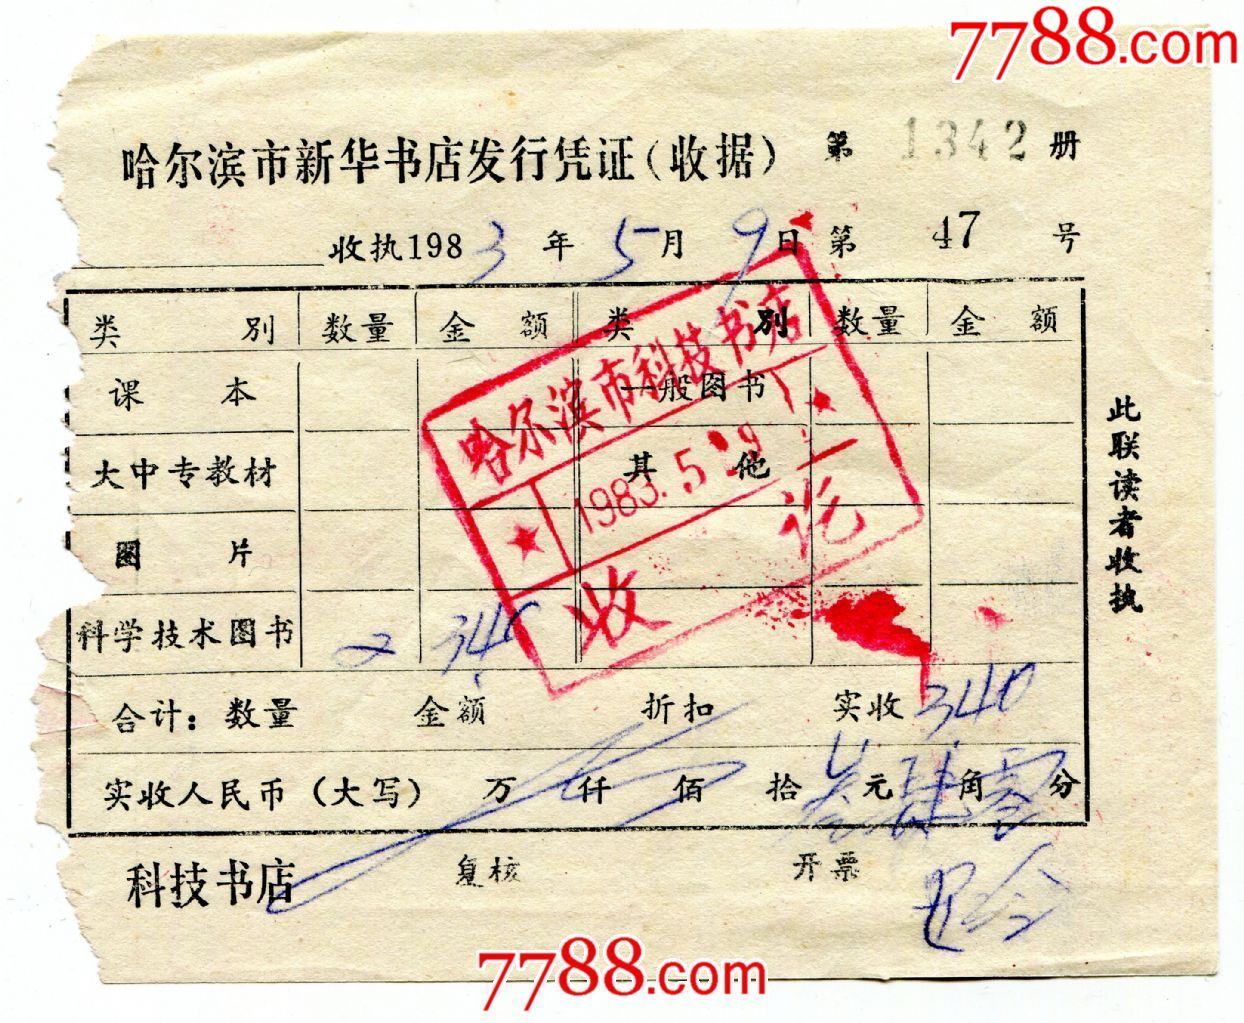 7788.com
哈尔滨市新华书店发行凭证(收据) 第 1342 册
收执1983年5月9日 第 47 号
类别 数量 金额 类别 数量 金额
课本 一般图书
大中专教材 其他
图片
科学技术图书 2 340
合计：数量 金额 折扣 实收 340
实收人民币（大写） 万 仟 佰 拾 叁元肆角零分
科技书店 复核 开票
此联读者收执
哈尔滨市科技书店
1983.5.9
收讫
7788.com